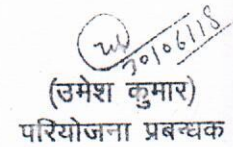 30/06/18
(उमेश कुमार)
परियोजना प्रबन्धक